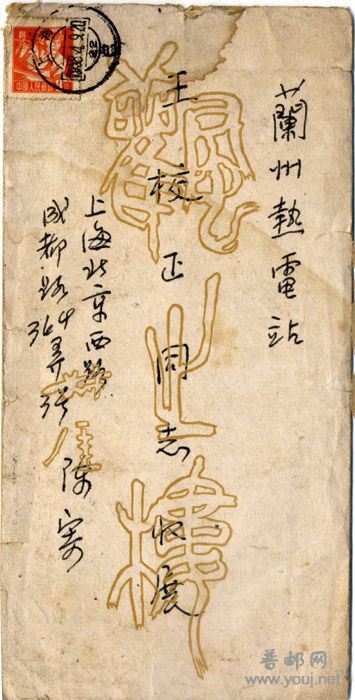 蘭州熱電站
王校正同志收展
上海北京西路
成都路
364弄3号
陳寄
中国人民邮政
普邮网
www.youj.net